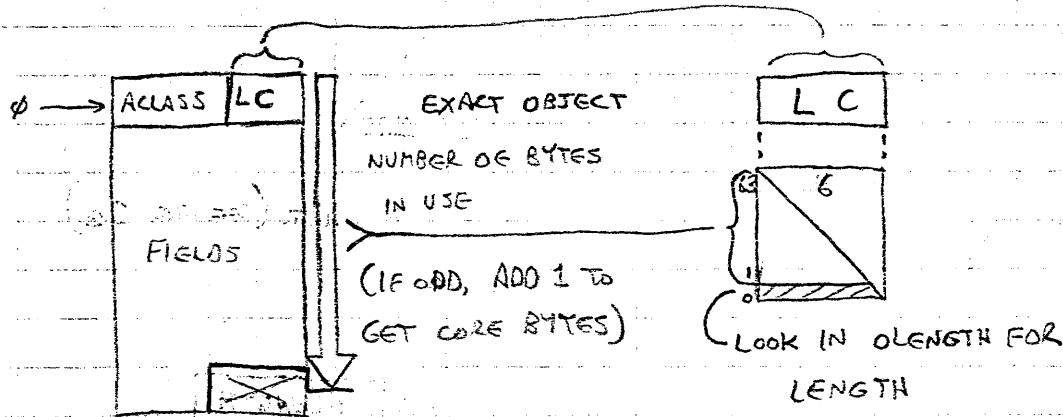 ø → ACLASS LC
L C
EXACT OBJECT
NUMBER OF BYTES
IN USE
(IF ODD, ADD 1 TO
GET CORE BYTES)
FIELDS
63
6
1
0
LOOK IN OLENGTH FOR
LENGTH